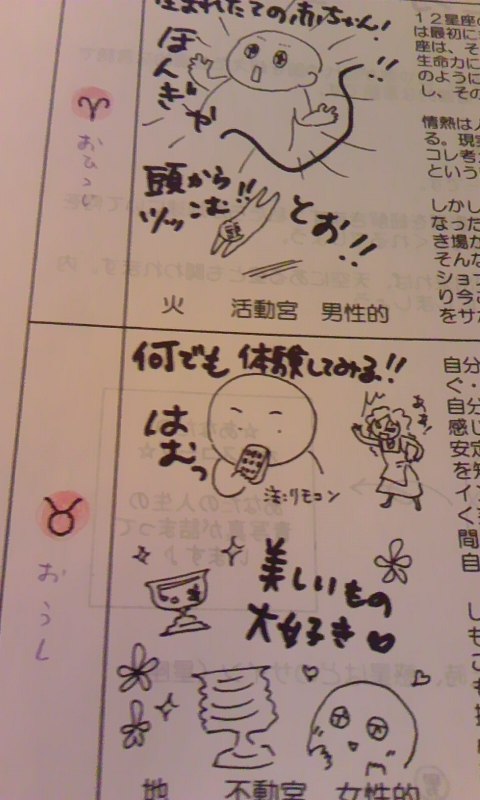 生まれたての赤ちゃん!
ほんぎゃ
!!
頭から
ツッこむ!!
とお!!
♈
おひつじ
火 活動宮 男性的
何でも 体験してみる!!
はむっ
注:リモコン
あっ!
♉
おうし
美しいもの
大好き♥
地 不動宮 女性的
12星座の
は最初に
座は、そ
生命力に
のように
し、その
情熱は人
る。現実
コレ考え
という
しかし
なった
き場か
そんな
ショッ
り今こ
をサカ
自分
ぐ・
自分
感じ
安定
を知
イン
く
間
自
し
も
こ
も